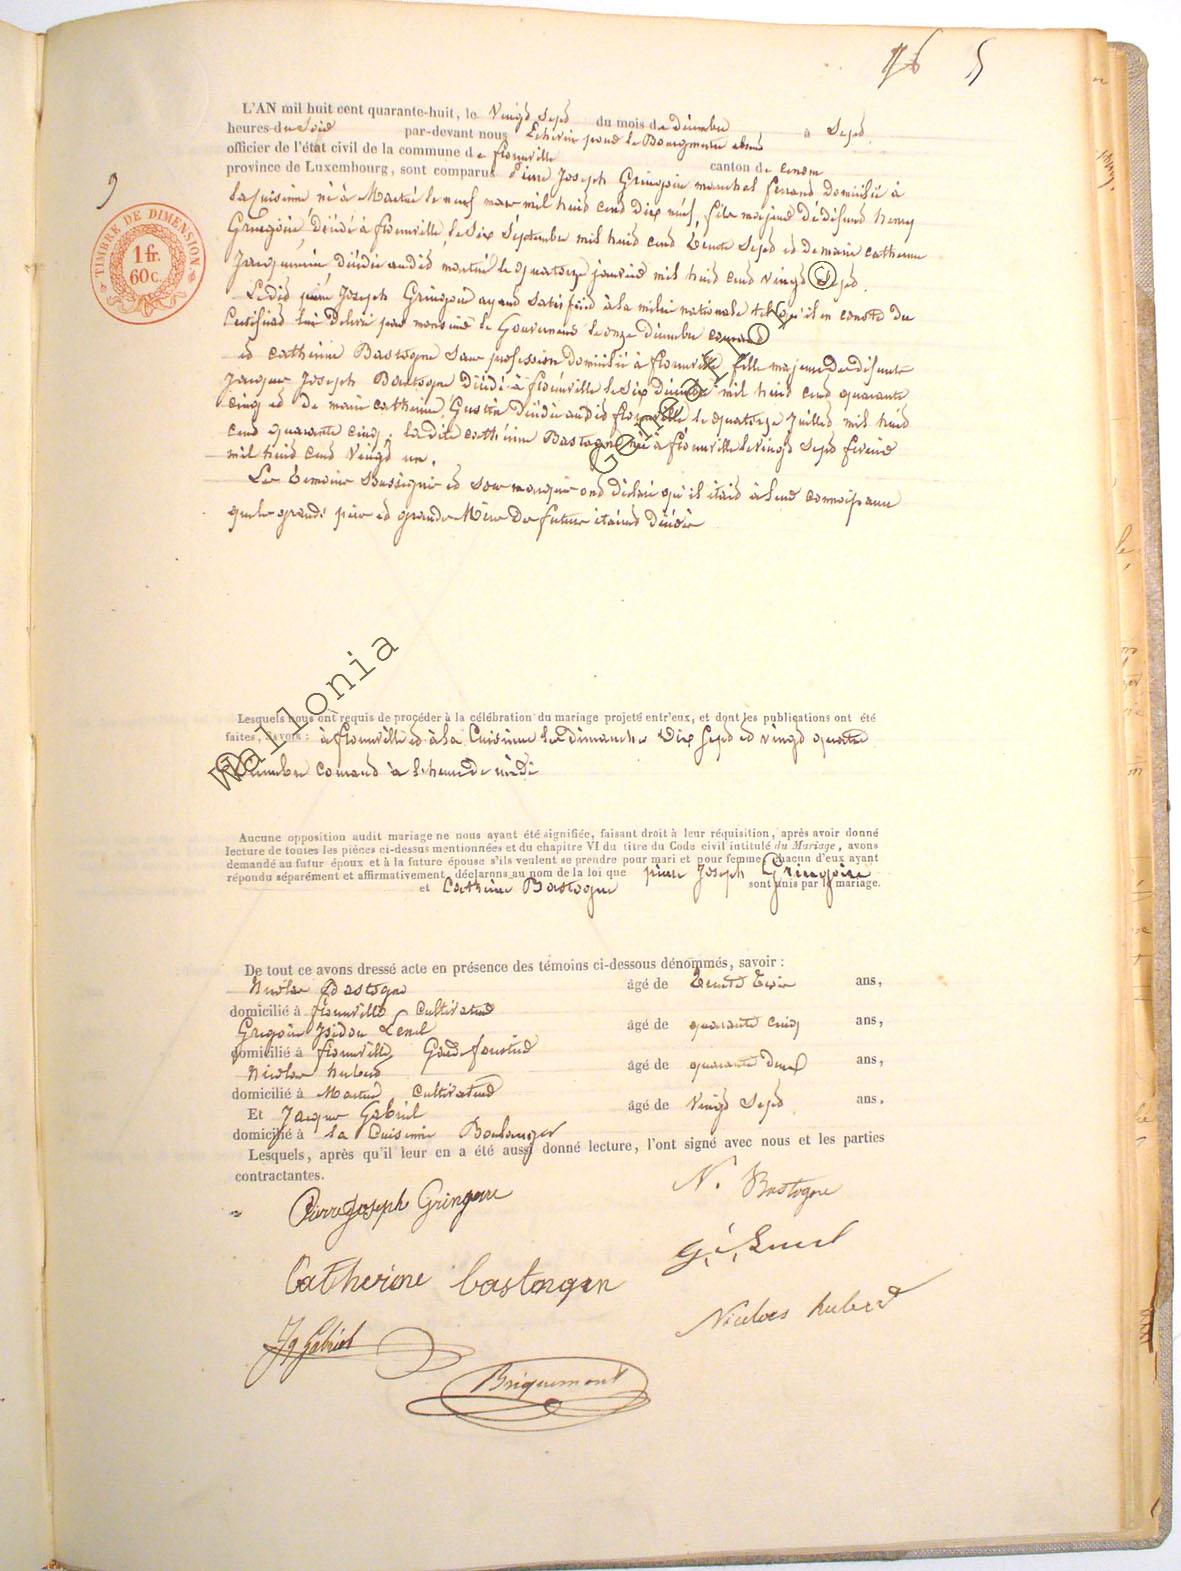 76 5
L'AN mil huit cent quarante-huit, le Vingt Sept du mois de décembre à Sept
heures du Soir par-devant nous Echevin pour le Bourgmestre absent
officier de l'état civil de la commune de florenville canton de
province de Luxembourg, sont comparus Pierre Joseph Gringoire marechal ferrant domicilié à
9
la Cuisinne né à Martué le neuf mars mil huit cent dix neuf, fils majeur de défunt henry
Gringoire, décédé à florenville, le Six Septembre mil huit cent trente Sept et de marie catherine
Jacquemin, décédée audit martué le quatorze janvier mil huit cent vingt Sept.
TIMBRE DE DIMENSION
1 fr.
60 c.
Ledit pierre Joseph Gringoire ayant Satisfait à la milice nationale tel qu'il en conste du
Certificat lui Delivré par monsieur le Gouverneur le onze décembre courant
et catherine Bastogne Sans profession domiciliée à florenville fille majeure de defunts
Jacques Joseph Bastogne Décédé à florenville le Six décembre mil huit cent quarante
cinq et de marie catherine Gustin Décédée audit florenville le quatorze Juillet mil huit
cent quarante cinq, ladite catherine Bastogne née à florenville le vingt Sept fevrier
mil huit cent vingt un.
Les temoins Soussignés et Sous marqués ont déclaré qu'il était à leur connoissance
que les grands pères et grandes Mères des futurs étaient décédés
Lesquels nous ont requis de procéder à la célébration du mariage projeté entr'eux, et dont les publications ont été
faites, savoir: à florenville et à la Cuisinne les dimanches Dix Sept et vingt quatre
Décembre courant à l'heure de midi
Aucune opposition audit mariage ne nous ayant été signifiée, faisant droit à leur réquisition, après avoir donné
lecture de toutes les pièces ci-dessus mentionnées et du chapitre VI du titre du Code civil intitulé du Mariage, avons
demandé au futur époux et à la future épouse s'ils veulent se prendre pour mari et pour femme, chacun d'eux ayant
répondu séparément et affirmativement, déclarons au nom de la loi que pierre Joseph Gringoire
et Catherine Bastogne sont unis par le mariage.
De tout ce avons dressé acte en présence des témoins ci-dessous dénommés, savoir:
Nicolas Bastogne âgé de trente trois ans,
domicilié à florenville Cultivateur
Gregoire Isidore Lenel âgé de quarante cinq ans,
domicilié à florenville Garde forestier
Nicolas hubert âgé de quarante deux ans,
domicilié à Martué, Cultivateur
Et Jacques Gabriel âgé de Vingt Sept ans.
domicilié à la Cuisinne Boulanger
Lesquels, après qu'il leur en a été aussi donné lecture, l'ont signé avec nous et les parties
contractantes.
N. Bastogne
Pierre Joseph Gringoire
Catherine bastongen
Nicolas hubert
Jq Gabriel
Briquemont
Wallonia